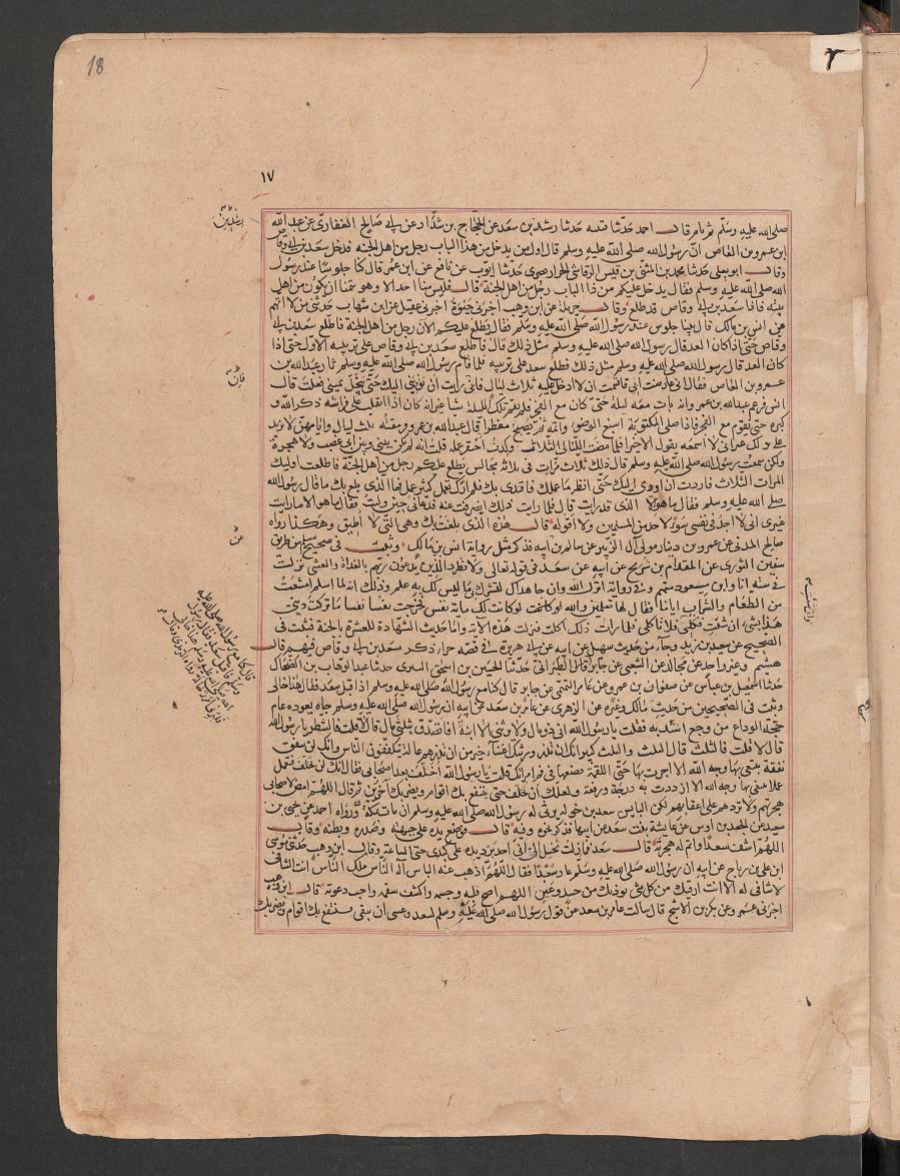 18
١٧
صلى الله عليه وسلم ثم نام قال احمد حدثنا قتيبة حدثنا رشد بن سعد عن الحجاج بن شداد عن ابي صالح الغفاري عن عبد الله
رشدين
ابن عمرو بن العاص ان رسول الله صلى الله عليه وسلم قال اول من يدخل من هذا الباب رجل من اهل الجنة فدخل سعد بن ابي وقاص
وقال ابو يعلى حدثنا محمد بن المثنى بن قيس الرقاشي الخزار حدثنا ايوب عن نافع عن ابن عمر قال كنا جلوسا عند رسول
الله صلى الله عليه وسلم فقال يدخل عليكم من ذا الباب رجل من اهل الجنة قال فليس منا احد الا وهو يتمنا ان يكون من اهل
بيته فاذا سعد بن ابي وقاص قد طلع وقال حرملة عن ابن وهب اخبرني حيوة اخبرني عقيل عن ابن شهاب حدثني من لا اتهم
عن انس بن مالك قال بينا جلوس عند رسول الله صلى الله عليه وسلم فقال يطلع عليكم الان رجل من اهل الجنة فاطلع سعد بن ابي
وقاص حتى اذا كان الغد قال رسول الله صلى الله عليه وسلم مثل ذلك قال فاطلع سعد بن ابي وقاص على ترتيبه الاول حتى اذا
كان الغد قال رسول الله صلى الله عليه وسلم مثل ذلك فطلع سعد على ترتيبه فلما قام رسول الله صلى الله عليه وسلم ثار عبد الله بن
عمرو بن العاص فقال اني غاضبت ابي فاقسمت ان لا ادخل عليه ثلاث ليال فان رايت ان تؤويني اليك حتى تنحل يميني فعلت قال
انس فزعم عبد الله بن عمر وانه بات معه ليلة حتى كان مع الفجر فلم يقم تلك الليلة شيا غير انه كان اذا انقلب على فراشه ذكر الله و
كبره حتى يقوم مع الفجر فاذا صلى المكتوبة اسبغ الوضوء واتمه ثم يصبح مفطرا قال عبد الله بن عمرو فرمقته ثلاث ليال وايامهن لا يزيد
على ذلك غير اني لا اسمعه يقول الا خيرا فلما مضت الليالي الثلاث وكدت احتقر عمله قلت انه لم يكن بيني وبين ابي غضب ولا هجرة
ولكن سمعت رسول الله صلى الله عليه وسلم قال ذلك ثلاث مرات في ثلاثة مجالس يطلع عليكم رجل من اهل الجنة فاطلعت اوليك
المرات الثلاث فاردت ان اوي اليك حتى انظر ما عملك فاقتدي بك فلم ارك تعمل كثير عمل فما الذي بلغ بك ما قال رسول الله
صلى الله عليه وسلم فقال ما هو الا الذي قد رايت قال فلما رايت ذلك انصرفت عنه فدعاني حين وليت فقال ما هو الا ما رايت
غير اني لا اجد في نفسي سوءا لاحد من المسلمين ولا اقوله قال هذه الذي بلغت بك وهي التي لا اطيق وهكذا رواه
صالح المدني عن عمرو بن دينار مولى آل الزبير عن سالم عن ابيه فذكر مثل رواية انس بن مالك وثبت في صحيح مسلم من طريق
سفين الثوري عن المقدام بن شريح عن ابيه عن سعد في قوله تعالى ولا تطرد الذين يدعون ربهم بالغداة والعشي نزلت
في ستة انا وابن مسعود منهم وفي رواية انزل الله وان جاهداك لتشرك بي ما ليس لك به علم وذلك انه لما اسلم امتنعت
من الطعام والشراب اياما فقال لها تعلمين والله لو كانت لك مائة نفس فخرجت نفسا نفسا ما تركت ديني
هذا لشيء ان شئت فكلي فلا تاكلي فلما رات ذلك اكلت فنزلت هذه الآية واما حديث الشهادة للعشرة بالجنة فثبت في
الصحيح عن سعيد بن زيد وجاء من حديث سهيل عن ابيه عن ابي هريرة في قصة حراء ذكر سعد بن ابي وقاص فيهم قال
هشيم وغير واحد عن مجالد عن الشعبي عن جابر قال الطبراني حدثنا الحسين بن اسحق التستري حدثنا عبد الوهاب بن الضحاك
حدثنا اسمعيل بن عياش عن صفوان بن عمرو عن ماعز التميمي عن جابر قال كنا مع رسول الله صلى الله عليه وسلم اذ اقبل سعد فقال هذا خالي
وثبت في الصحيحين من حديث مالك وغيره عن الزهري عن عامر بن سعد عن ابيه ان رسول الله صلى الله عليه وسلم جاه يعوده عام
حجة الوداع من وجع اشتد به فقلت يا رسول الله اني ذو مال ولا يرثني الا ابنة افاتصدق بثلثي مالي قال لا قلت فالشطر يا رسول الله
قال لا قلت فالثلث قال الثلث والثلث كثير انك ان تذر ورثتك اغنياء خير من ان تذرهم عالة يتكففون الناس وانك لن تنفق
نفقة تبتغي بها وجه الله الا اجرت بها حتى اللقمة تضعها في في امراتك قلت يا رسول الله اخلف بعد اصحابي فقال انك لن تخلف فتعمل
عملا تبتغي بها وجه الله الا ازددت به درجة ورفعة ولعلك ان تخلف حتى ينتفع بك اقوام ويضر بك آخرين ثم قال اللهم امض لاصحابي
هجرتهم ولا تردهم على اعقابهم لكن البايس سعد بن خولة يرثي له رسول الله صلى الله عليه وسلم ان مات بمكة ورواه احمد عن يحيى بن
سعيد عن الجعد بن اوس عن عايشة بنت سعد عن ابيها فذكر نحوه وفيه قال فوضع يده على جبهته وصدره وبطنه وقال
اللهم اشف سعدا واتم له هجرته قال سعد فما زلت يخيل الي اني اجد برد يده على كبدي حتى الساعة وقال ابن وهب حدثني موسى
ابن علي بن رباح عن ابيه ان رسول الله صلى الله عليه وسلم عاد سعدا فقال اللهم اذهب عنه الباس اله الناس ملك الناس انت الشافي
لا شافي له الا انت ارقيك من كل شيء يوذيك من حسد وعين اللهم اصح قلبه وجسمه واكشف سقمه واجب دعوته قال ابن وهب
اخبرني عمرو عن بكر بن الاشج قال سالت عامر بن سعد عن قول رسول الله صلى الله عليه وسلم لسعد وعسى ان تبقى ينتفع بك اقوام ويضر بك